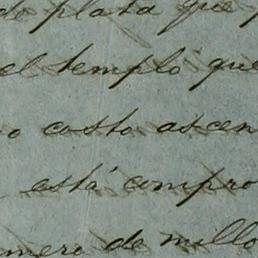 do plata que p
el templo que
o costo ascen
está compro
mero de millo